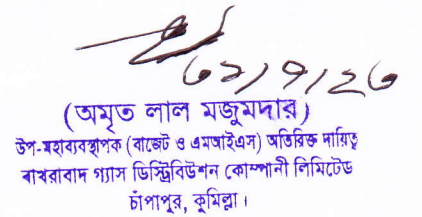 ৩১/৭/২৩
(অমৃত লাল মজুমদার)
উপ-মহাব্যবস্থাপক (বাজেট ও এমআইএস) অতিরিক্ত দায়িত্ব
বাখরাবাদ গ্যাস ডিস্ট্রিবিউশন কোম্পানী লিমিটেড
চাঁপাপুর, কুমিল্লা।